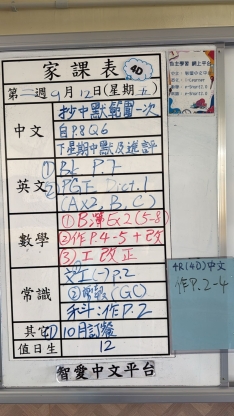 家課表
4D
第二週9月12日(星期五)
中文
抄中默範圍一次
自P.8 Q6
下星期中默及進評
英文
① BK P.7
② PGE Dict.1
(Ax2, B, C)
數學
① B簿 Ex2 (5-8)
② 作P.4-5 + 改
③ 工改正
常識
P.2
(GC)
科:作P.2
其它
① 10月訂餐
值日生
12
智愛中文平台
4R(4D)中文
作P.2-4